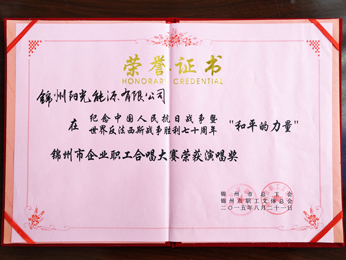 荣誉证书
HONORARY CREDENTIAL
锦州阳光能源有限公司
在 纪念中国人民抗日战争暨
世界反法西斯战争胜利七十周年 “和平的力量”
锦州市企业职工合唱大赛荣获演唱奖
锦州市总工会
锦州市职工文体总会
二〇一五年八月二十一日